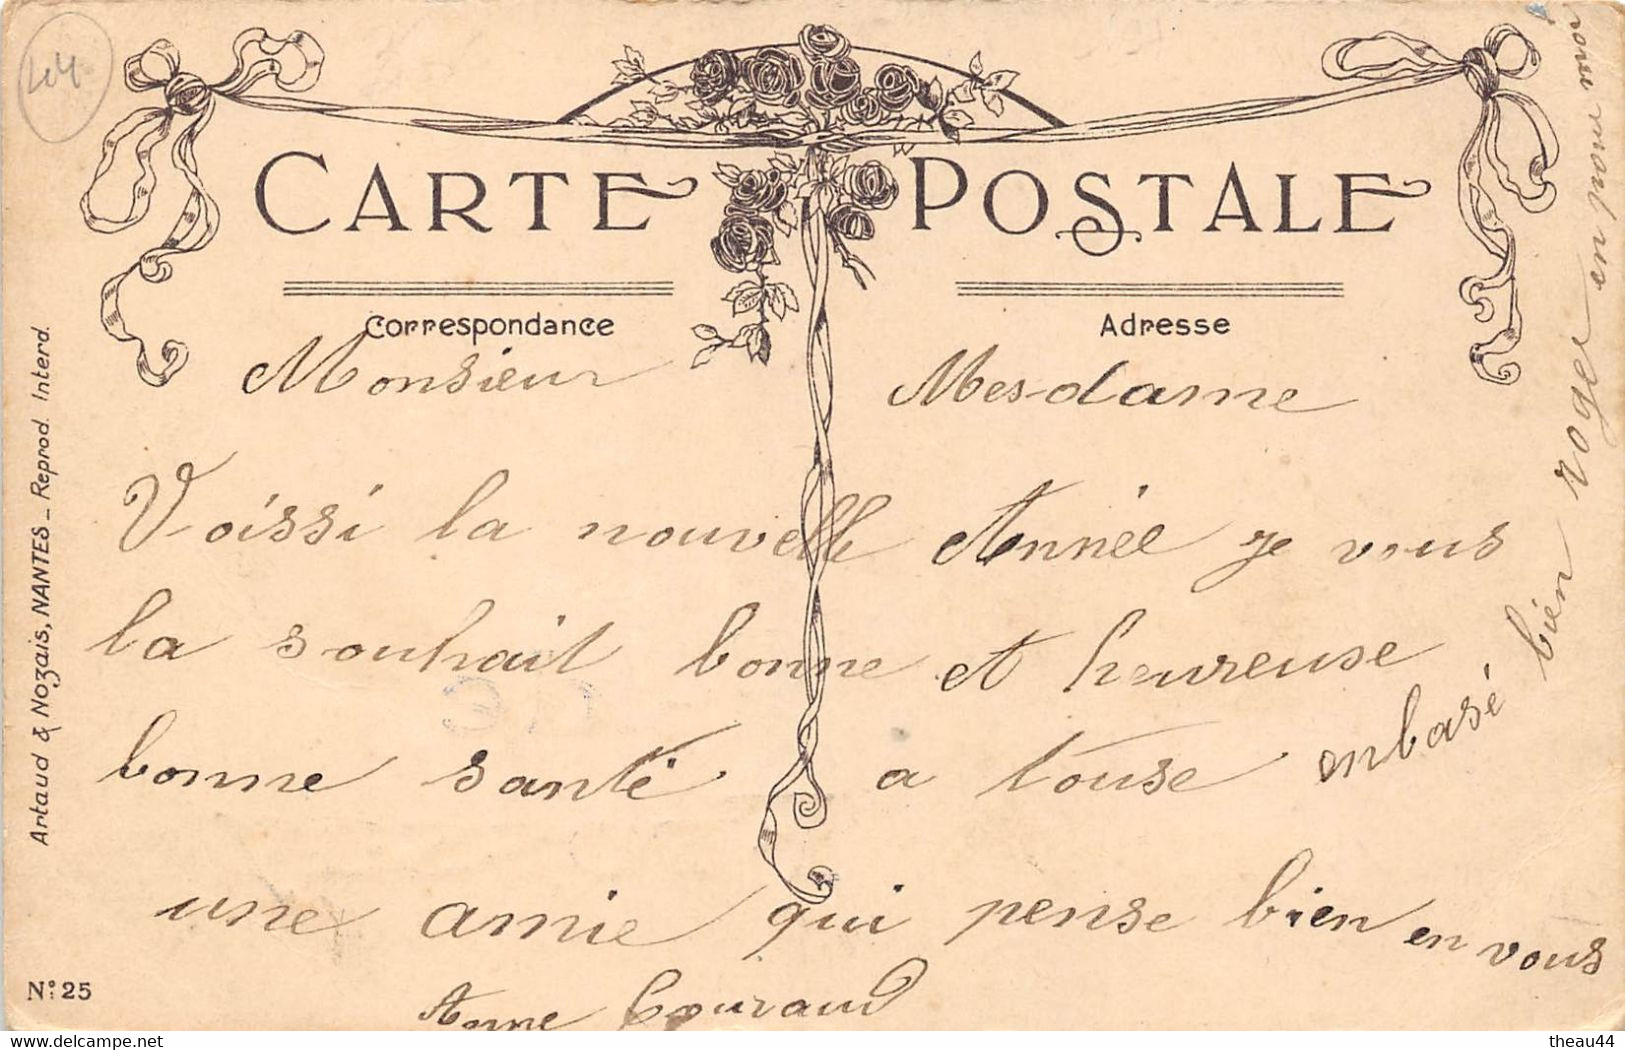 44
CARTE POSTALE
Correspondance
Adresse
Monsieur Mes-dame
Voissi la nouvelle Année je vous
la souhait bonne et heureuse
bonne santé a touse
une amie qui pense bien en vous
Anne Couraud
enbasé bien roger en pour moi
Artaud & Nozais, NANTES _ Reprod. Interd.
N° 25
www.delcampe.net
theau44